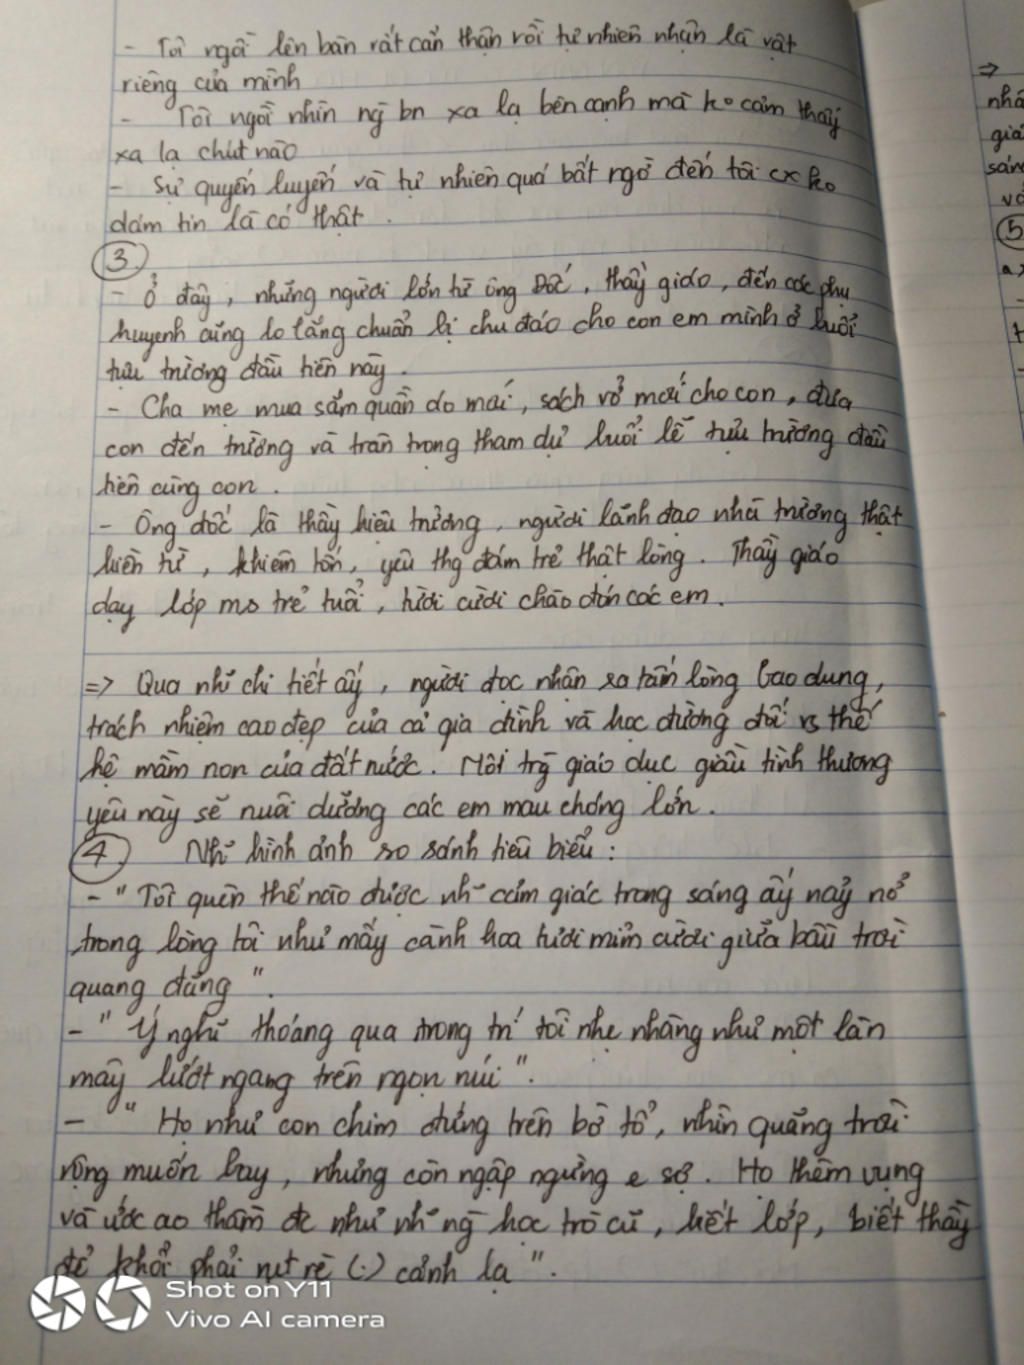 - Tôi ngồi lên bàn rất cẩn thận rồi tự nhiên nhận là vật
riêng của mình
- Tôi ngồi nhìn ng bn xa lạ bên cạnh mà ko cảm thấy
xa lạ chút nào
- Sự quyến luyến và tự nhiên quá bất ngờ đến tôi cx ko
dám tin là có thật.
3
- Ở đây, những người lớn từ ông Đốc, thầy giáo, đến các phụ
huynh cũng lo lắng chuẩn bị chu đáo cho con em mình ở buổi
tựu trường đầu tiên này.
- Cha mẹ mua sắm quần áo mới, sách vở mới cho con, đưa
con đến trường và trân trọng tham dự buổi lễ tựu trường đầu
tiên cùng con.
- Ông đốc là thầy hiệu trưởng, người lãnh đạo nhà trường thật
hiền từ, khiêm tốn, yêu thg đám trẻ thật lòng. Thầy giáo
dạy lớp ms trẻ tuổi, tươi cười chào đón các em.
=> Qua nh~ chi tiết ấy, người đọc nhận ra tấm lòng bao dung,
trách nhiệm cao đẹp của cả gia đình và học đường đối vs thế
hệ mầm non của đất nước. Môi trg giáo dục giàu tình thương
yêu này sẽ nuôi dưỡng các em mau chóng lớn.
4 Nh~ hình ảnh so sánh tiêu biểu:
- "Tôi quên thế nào được nh~ cảm giác trong sáng ấy nảy nở
trong lòng tôi như mấy cành hoa tươi mỉm cười giữa bầu trời
quang đãng".
- "Ý nghĩ thoáng qua trong trí tôi nhẹ nhàng như một làn
mây lướt ngang trên ngọn núi".
- "Họ như con chim đứng trên bờ tổ, nhìn quãng trời
rộng muốn bay, nhưng còn ngập ngừng e sợ. Họ thèm vụng
và ước ao thầm đc như những học trò cũ, biết lớp, biết thầy
để khỏi phải rụt rè (.) cảnh lạ".
=>
nhá
già
sán
và
5
Shot on Y11
Vivo AI camera